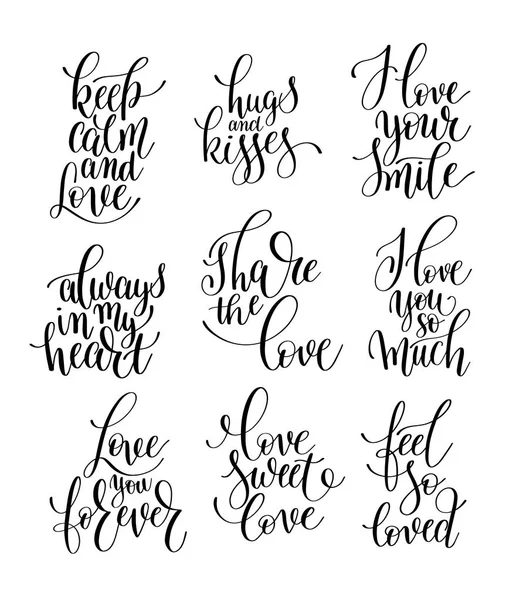 keep
calm
and
Love
hugs
and
kisses
I love
your
Smile
always
in my
heart
Share
the
love
I love
you
so
Much
Love
you
forever
love
sweet
love
feel
so
loved